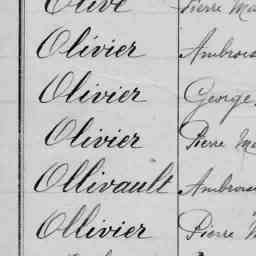 Olive Pierre
Olivier
Olivier George
Olivier Pierre
Ollivault
Ollivier Pierre